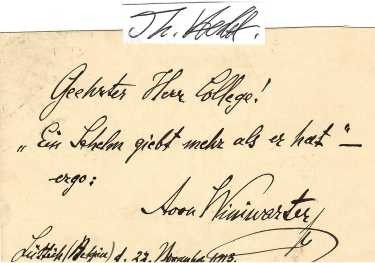 Th.
Geehrter Herr College!
„Ein Schelm giebt mehr als er hat“ —
ergo:
A von Winiwarter
Lüttich (Belgien) d. November